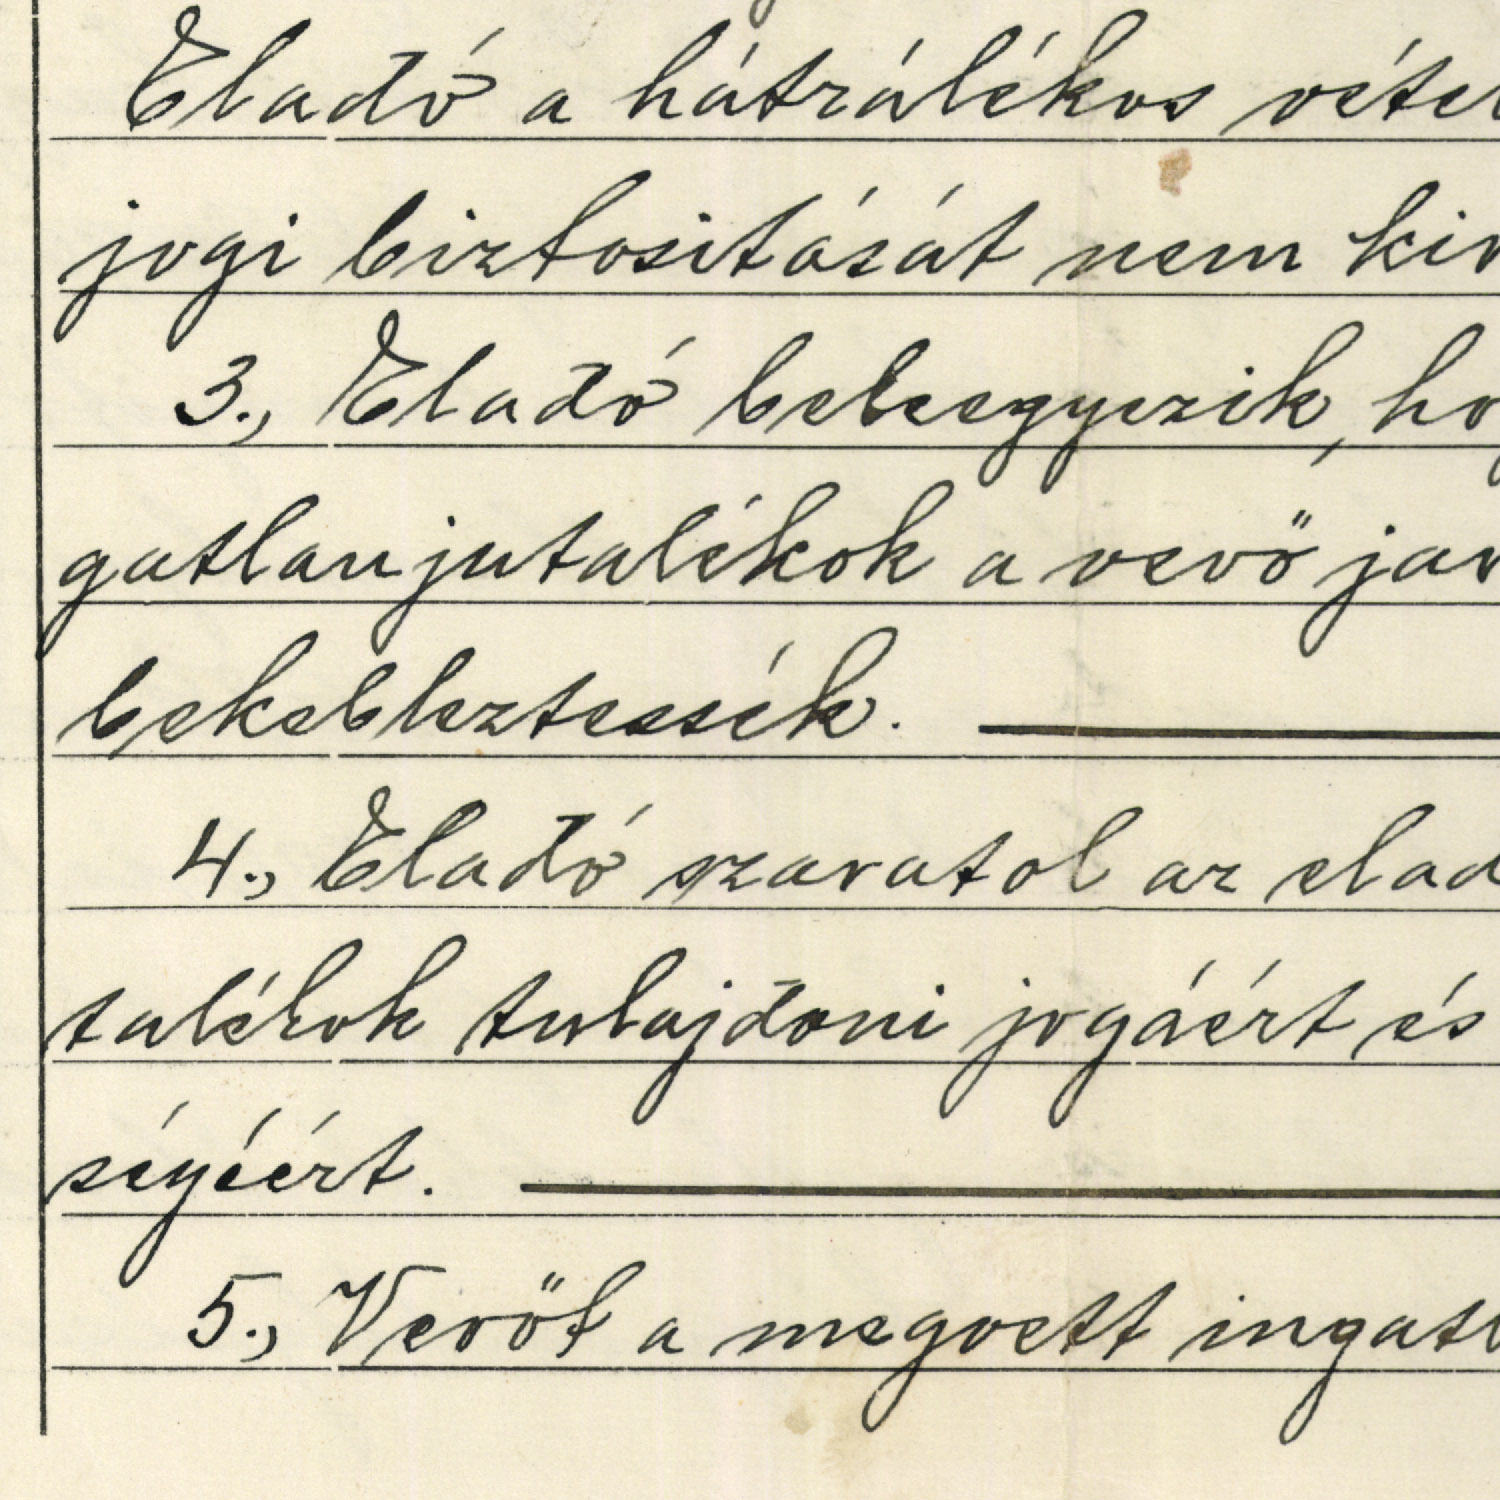 Eladó a hátrálékos vétel
jogi biztositását nem kiv
3., Eladó beleegyezik, hog
gatlanjutalékok a vevő jav
bekebleztessék.
4., Eladó szavatol az elad
talékok tulajdoni jogáért és
ségéért.
5., Vevőt a megvett ingatl